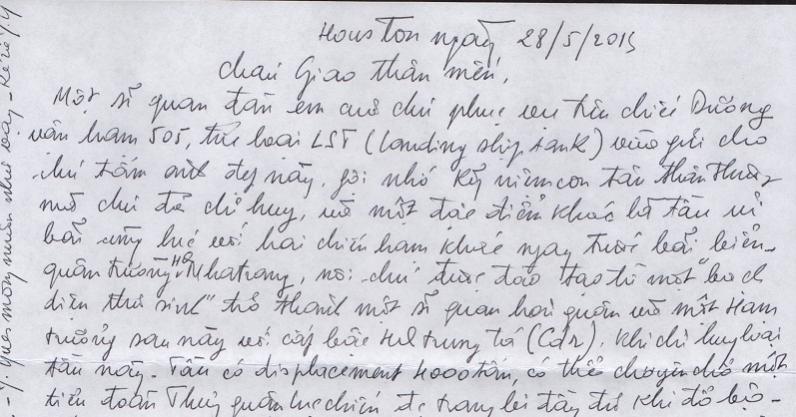 Houston ngày 28/5/2015
cháu Giao thân mến,
Một sĩ quan đàn em cuả chú phục vụ trên chiếc Dương
vận hạm 505, tức loại LST (Landing ship tank) vừa gửi cho
chú tấm ảnh đẹp này, gợi nhớ kỷ niệm con tàu thân thương
mà chú đã chỉ huy, và một đặc điểm khác là tàu ủi
bãi cùng lúc với hai chiến hạm khác ngay trước bãi biển
quân trường HQ Nhatrang, nơi chú được đào tạo từ một "bạch
diện thư sinh" trở thành một sĩ quan hải quân và một Hạm
trưởng sau này với cấp bậc HQ trung tá (Cdr), khi chỉ huy loại
tàu này. Tàu có displacement 4000 tấn, có thể chuyên chở một
tiểu đoàn Thuỷ quân lục chiến được trang bị đầy đủ khi đổ bộ-